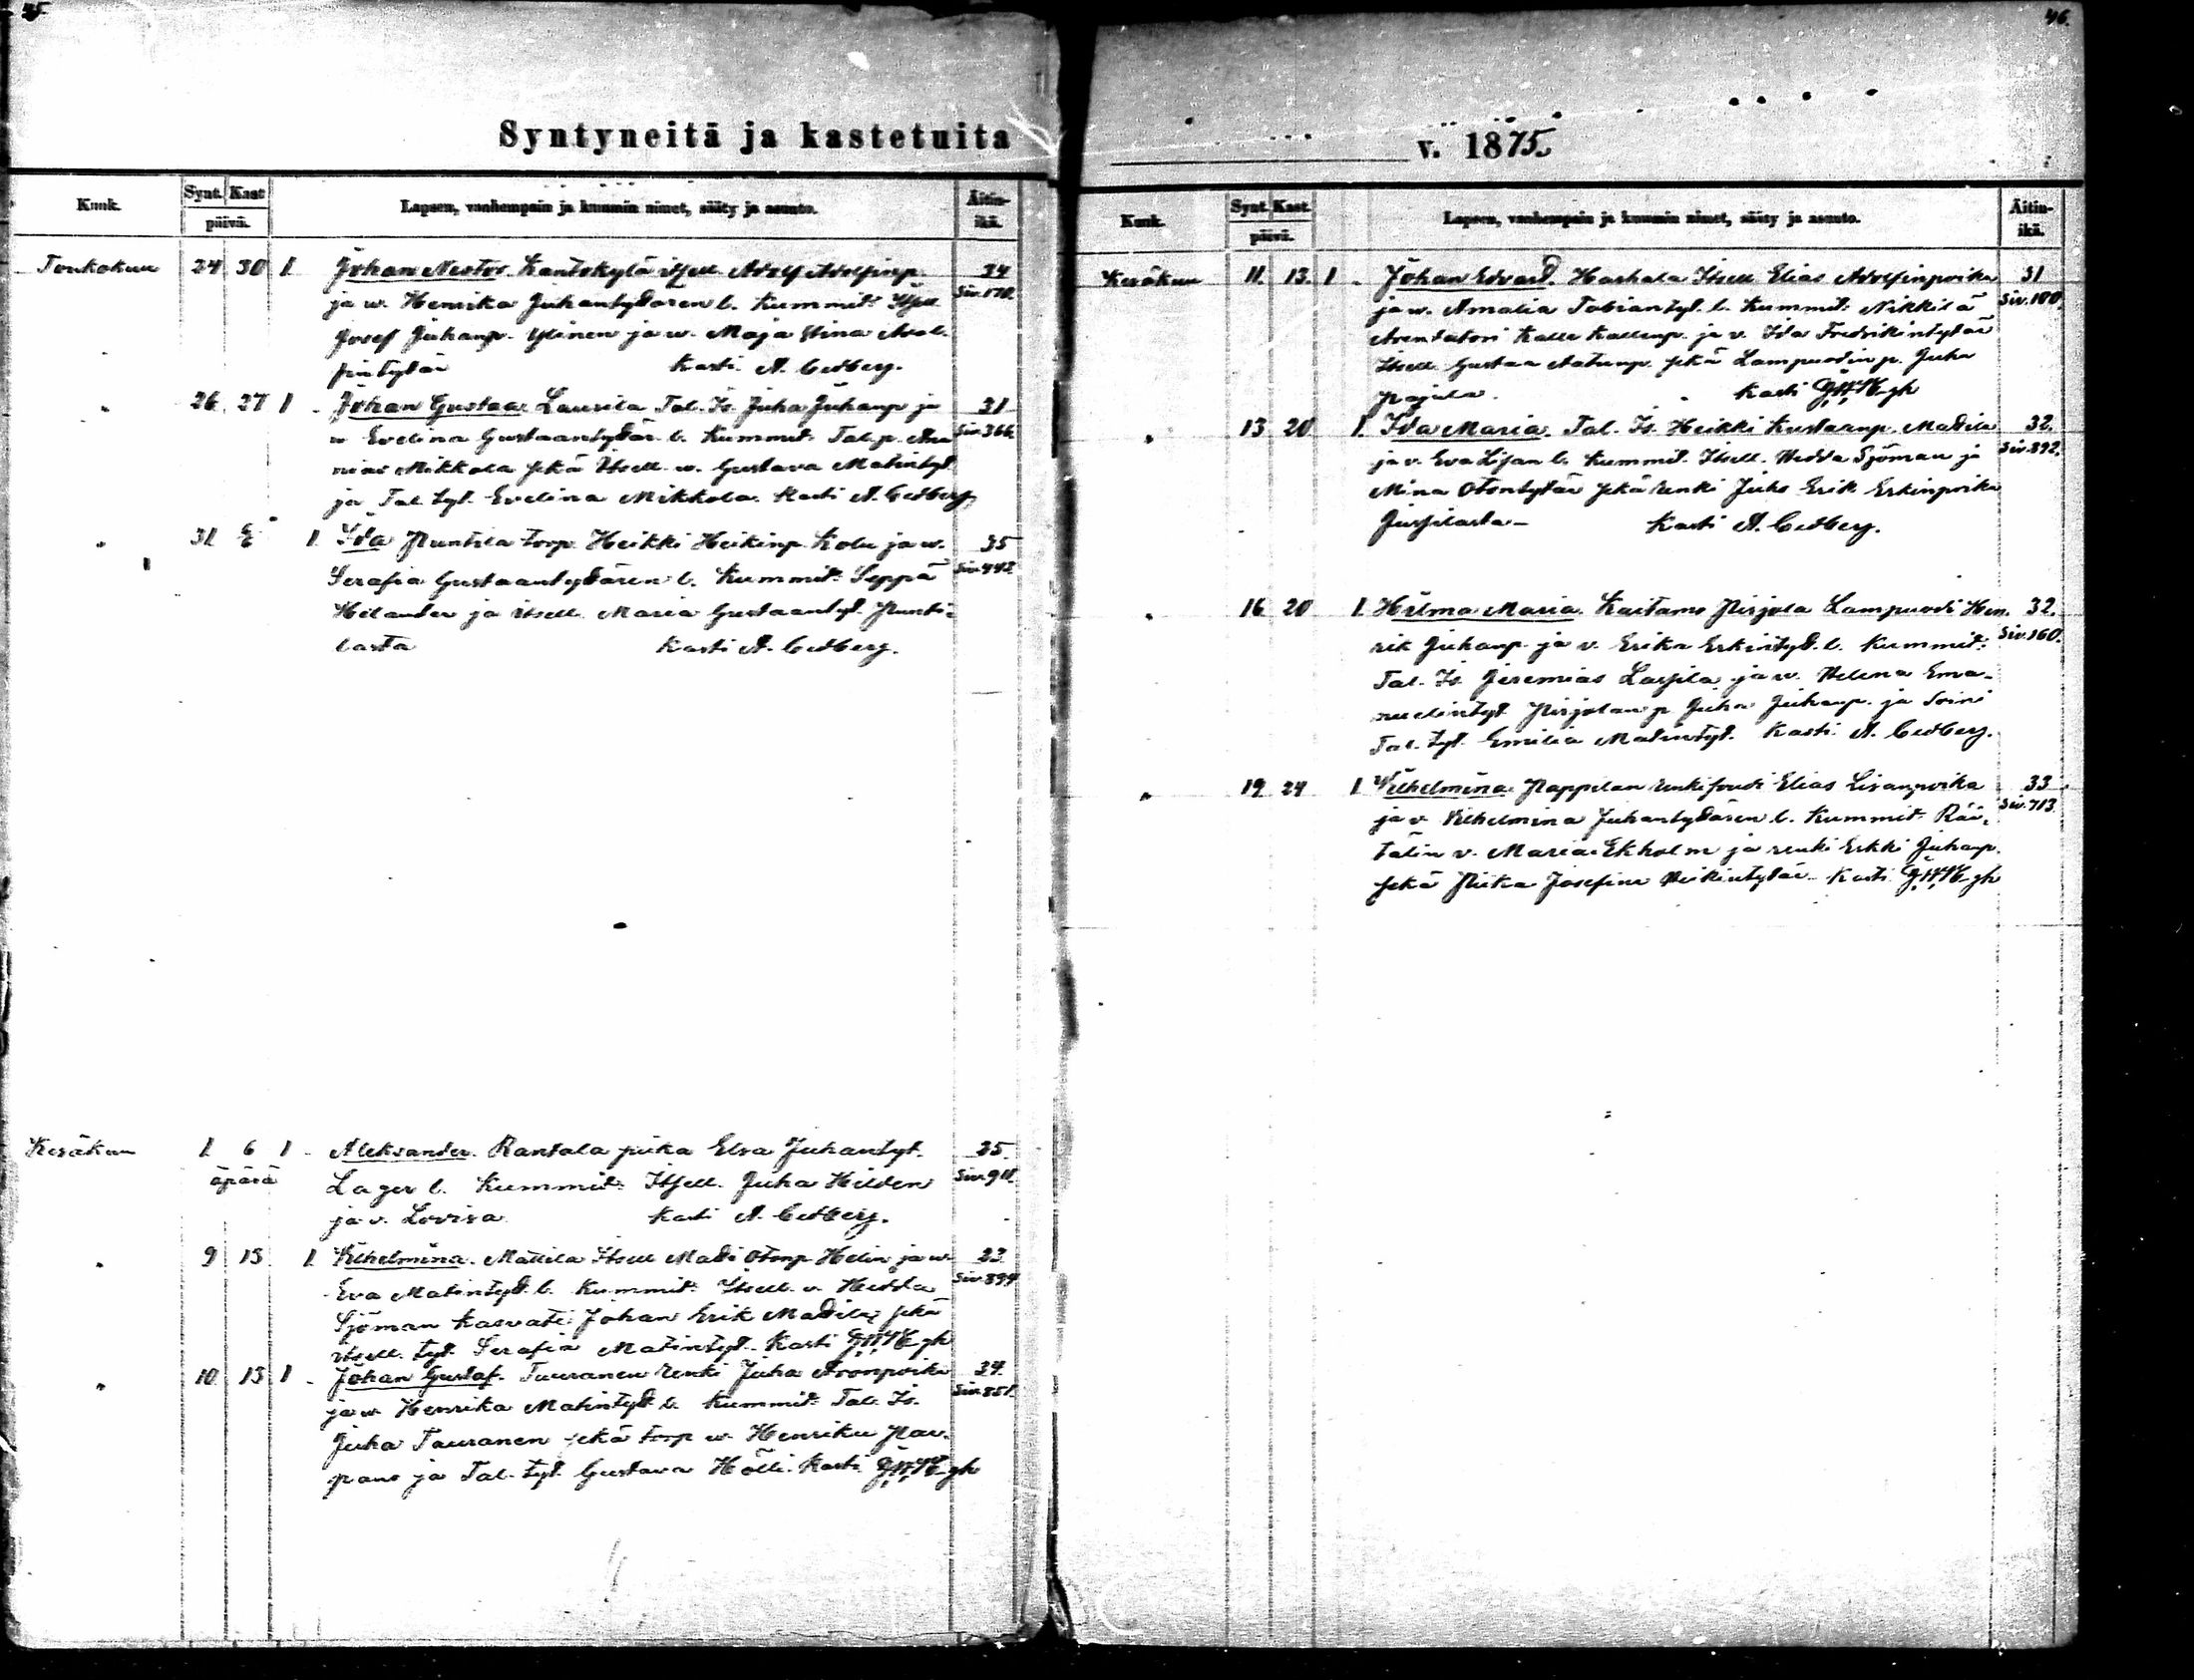 45.
Syntyneitä ja kastetuita
Kuuk. Synt. Kast. päivä. Lapsen, vanhempain ja kummin nimet, sääty ja asunto. Äitin-ikä.
Toukokuu 24 30 1 Johan Nestor. Kantokylä itsell. Adolf Adolfinp. 34
ja w. Henrika Juhantytären l. Kummit: Itsell Siv.
Josef Juhanp. Ylinen ja w. Maja Stina
tytär Kasti A. Cedberg.
" 26 27 1 Johan Gustaa. Laurila Tal. Is. Juha Juhanp ja 31
w Evelina Gustaantytär. l. Kummit: Tal.p. Siv. 366.
Mikkola sekä Itsell. w. Gustava Matintyt.
ja Tal. tyt. Evelina Mikkola. Kasti A. Cedberg.
" 31 6/6 1 Ida Puntila torp. Heikki Heikinp. Kolu ja w. 35
Serafia Gustaantytären l. Kummit: Seppä Siv. 442.
Helander ja itsell. Maria Gustaantyt. Punti-
lasta Kasti A. Cedberg.
Kesäkuu 1 6 1 Aleksander. Rantala piika Elsa Juhantyt. 25.
äpärä Lager l. Kummit: Itsell. Juha Hilden Siv.
ja v. Lovisa Kasti A. Cedberg.
" 9 13 1 Vilhelmina. Mattila Itsell Matti Otonp. Helin ja w. 23
Eva Matintyt. l. Kummit: Itsell. v. Hedda Siv. 894
Sjöman Kasvatti Johan Erik Mattila, sekä
itsell. tyt. Serafia Matintyt. Kasti
" 10. 13 1 Johan Gustaf. Tauranen renki Juha Aronpoika 34.
ja w Henrika Matintyt l. Kummit: Tal. Is. Siv. 851.
Juha Tauranen sekä torp w. Henrika
ja Tal. tyt. Gustava Hölli. Kasti
46.
v. 1875.
Kuuk. Synt. Kast. päivä. Lapsen, vanhempain ja kummin nimet, sääty ja asunto. Äitin-ikä.
Kesäkuu 11. 13. 1 Johan Edvard. Harhala Itsell Elias Adolfinpoika 31
ja w. Amalia Tobiantyt. l. Kummit: Nikkilä Siv. 100.
Arentatori Kalle Kallenp. ja v. Ida Fredrikintytär
Itsell. Gustaa Aatunp. sekä Lampuodin p. Juha
Pajula. Kasti
" 13 20 1. Ida Maria. Tal. Is. Heikki Kustaanp. Mattila 32.
ja v. Eva Lisan l. Kummit. Itsell. Hedda Sjöman ja Siv. 892.
Mina Otontytär sekä renki Juho Erik Erkinpoika
Kasti A. Cedberg.
" 16 20 1. Hilma Maria. Kaitamo Pirjola Lampuodi Hen- 32.
rik Juhanp. ja v. Erika Erkintyt. l. Kummit: Siv. 160.
Tal. Is. Jeremias Lassila ja w. Helena Ema-
nuelintyt Pirjolan p. Juha Juhanp. ja Soini
Tal. tyt. Emilia Matintyt. Kasti A. Cedberg.
" 19 24 1 Vilhelmina. Pappilan renkifouti Elias Lisanpoika 33
ja v Vilhelmina Juhantytären l. Kummit: Rää- Siv. 713.
tälin v. Maria Ekholm ja renki Erkki Juhanp.
sekä Piika Josefina Heikintytär. Kasti